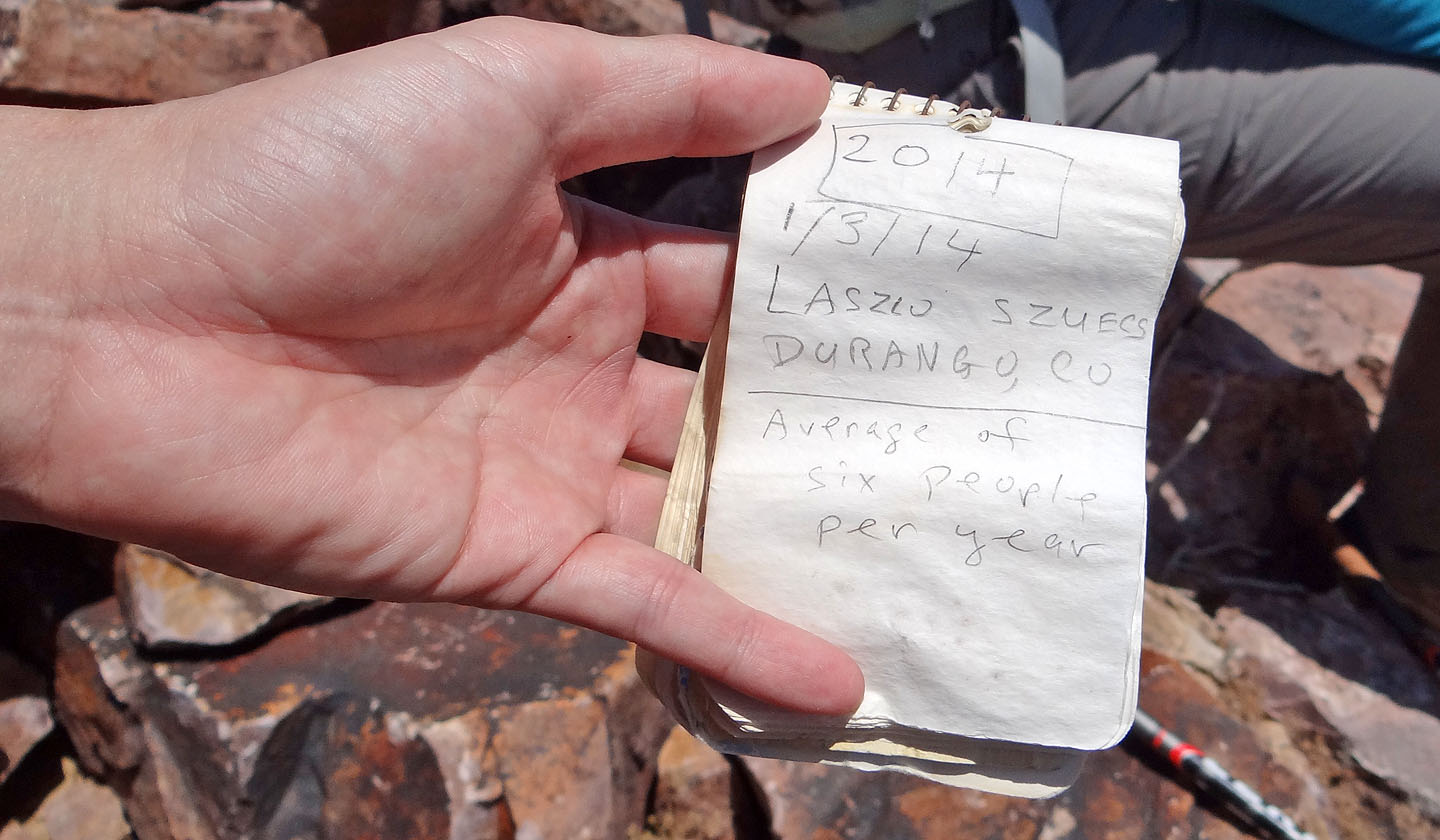 2014
1/3/14
LASZLO SZUECS
DURANGO, CO
Average of
six people
per year